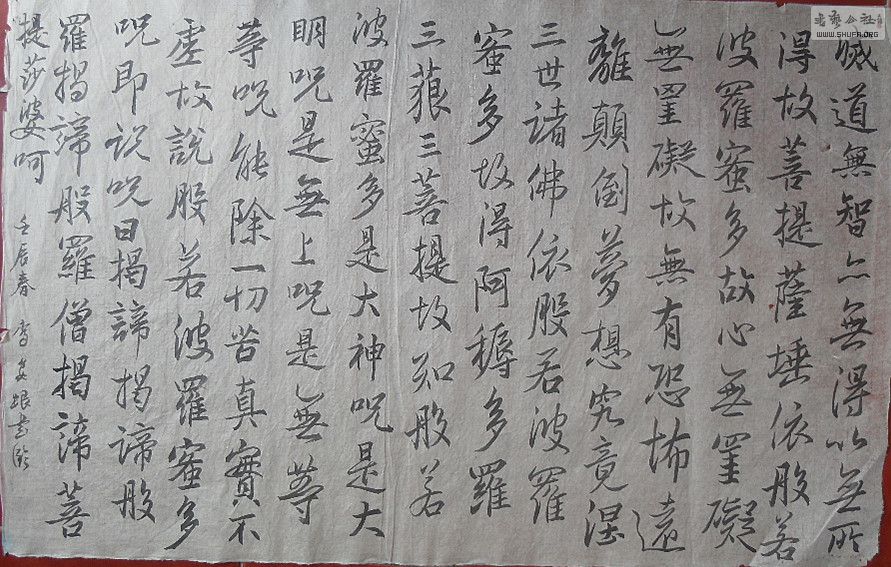 书艺公社
WWW.SHUFA.ORG
滅道無智亦無得以無所
得故菩提薩埵依般若
波羅蜜多故心無罣礙
無罣礙故無有恐怖遠
離顛倒夢想究竟涅
三世諸佛依般若波羅
蜜多故得阿耨多羅
三藐三菩提故知般若
波羅蜜多是大神呪是大
明呪是無上呪是無等
等呪能除一切苦真實不
虛故說般若波羅蜜多
呪即説呪曰揭諦揭諦般
羅揭諦般羅僧揭諦菩
提莎婆呵
壬辰春 李